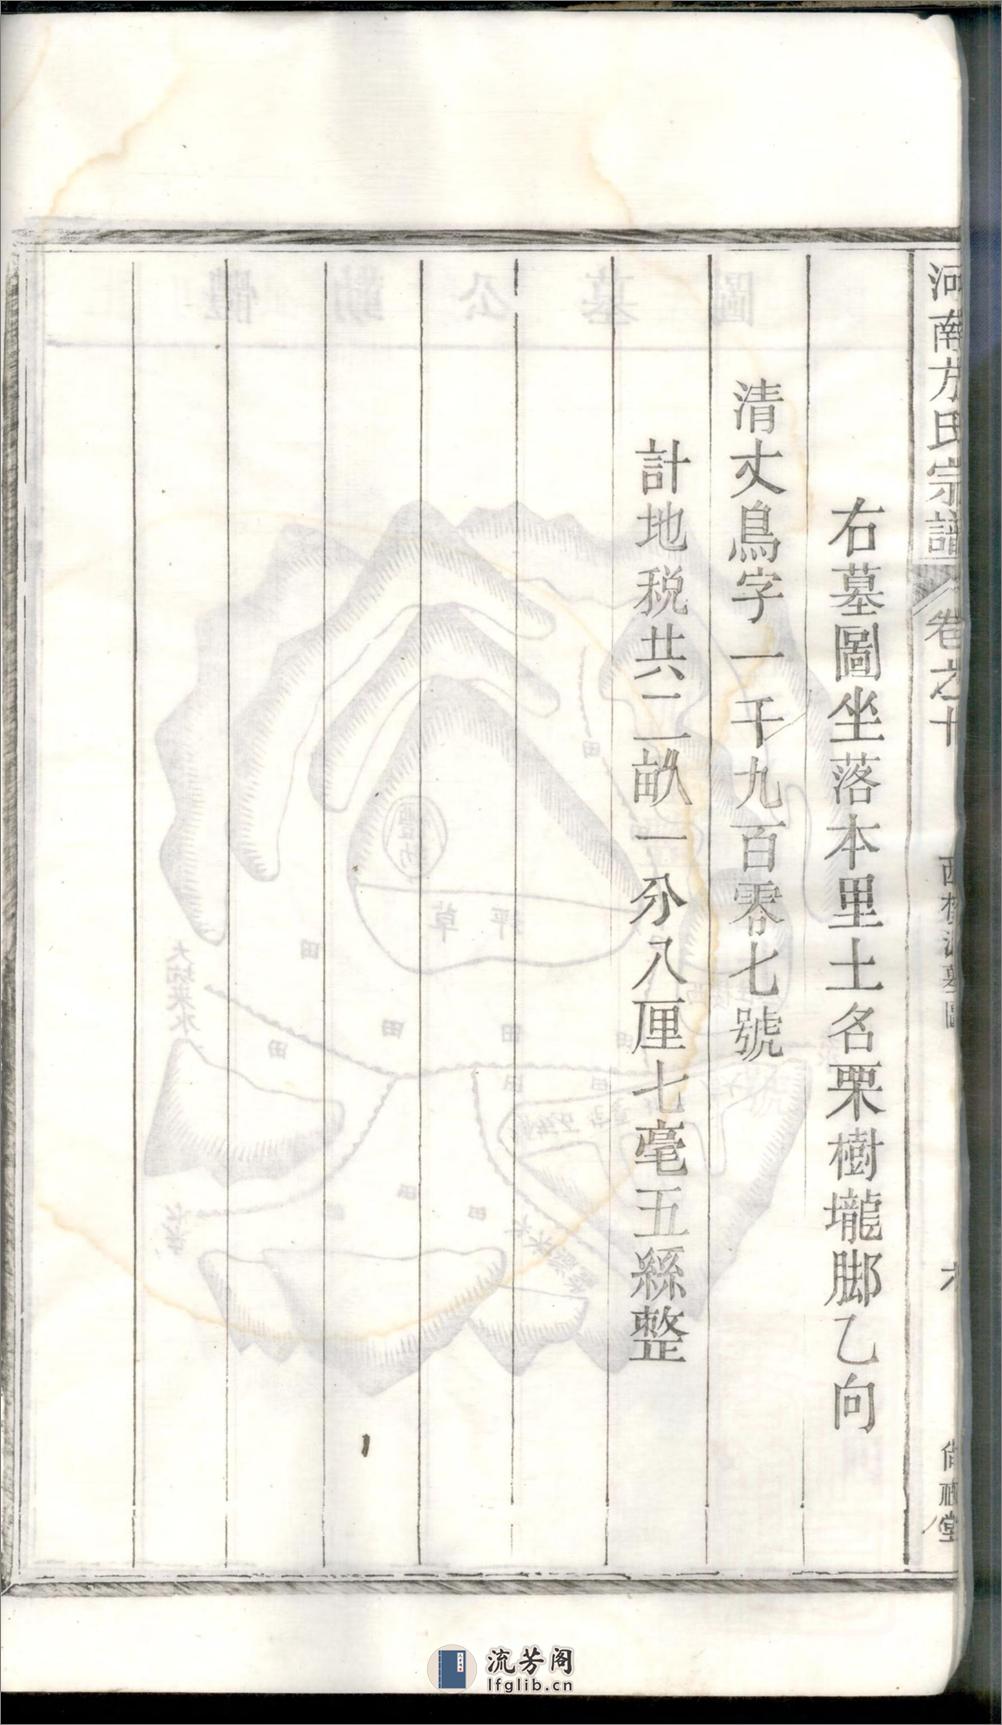 右墓圖坐落本里土名栗樹壠脚乙向
清丈鳥字一千九百零七號
計地税共二畝一分八厘七毫五絲整
河南方氏宗譜
卷之十
墓圖
堂
流芳阁
lfglib.cn